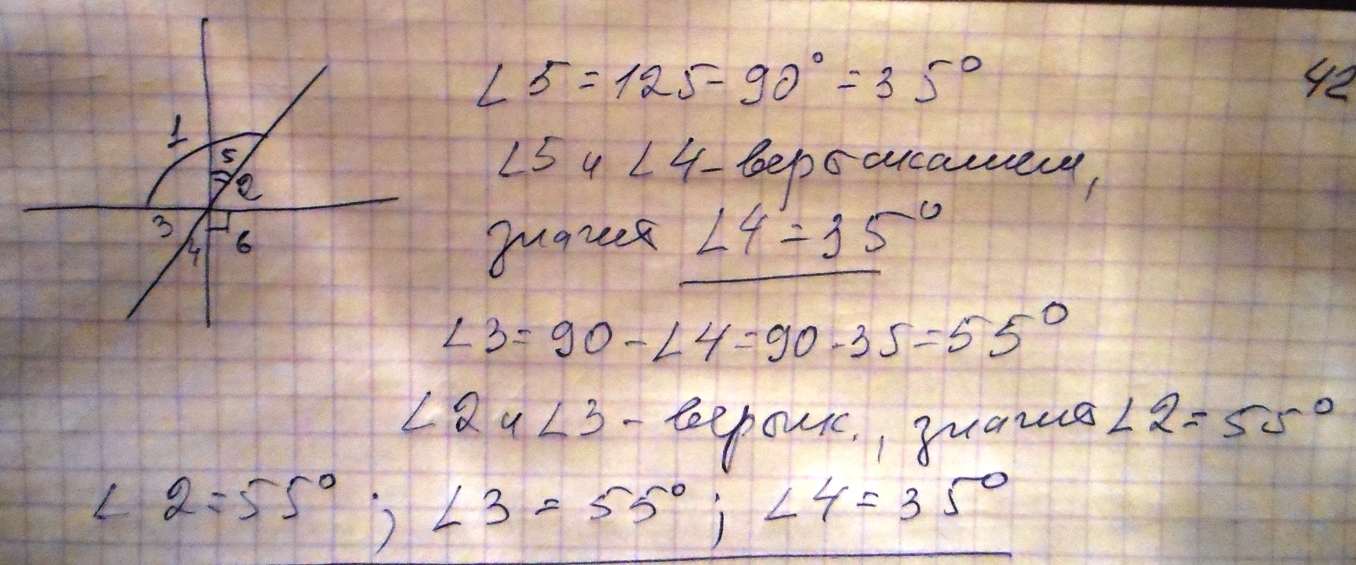 42
1
5
2
3
4
6
∠5 = 125 - 90° = 35°
∠5 и ∠4 - вертикальные,
значит ∠4 = 35°
∠3 = 90 - ∠4 = 90 - 35 = 55°
∠2 и ∠3 - вертик., значит ∠2 = 55°
∠2 = 55° ; ∠3 = 55° ; ∠4 = 35°